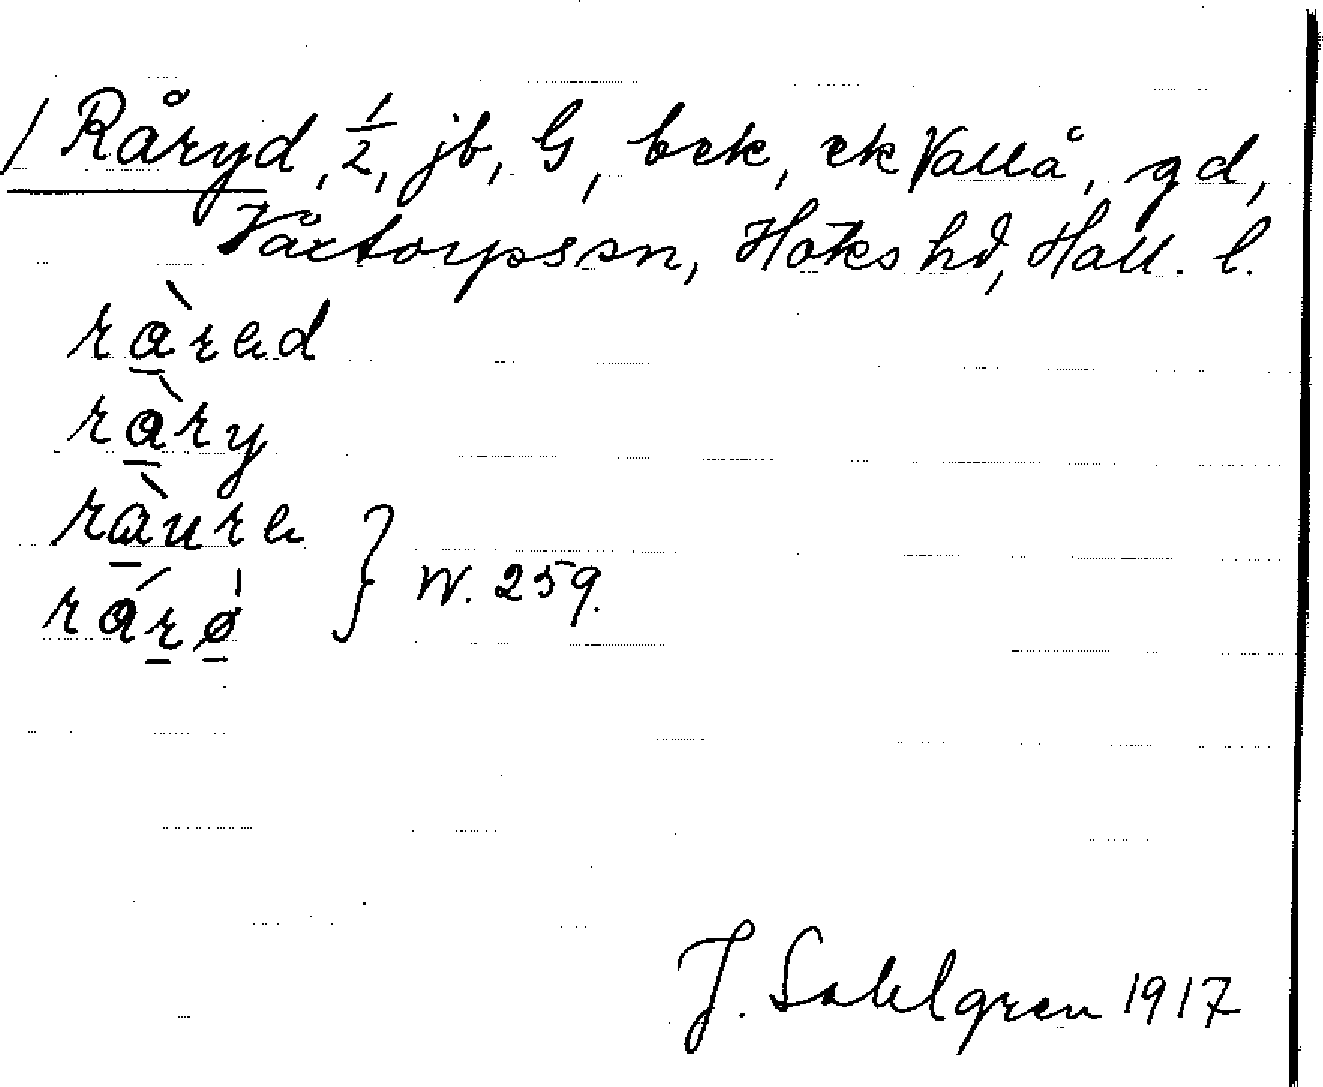 / Råryd, 1/2, jb, G, bek, ek Vallå, gd,
Våxtorps sn, Höks hd, Hall. l.
ràred
ràry
ràure
rárø
} W. 259.
J. Sahlgren 1917